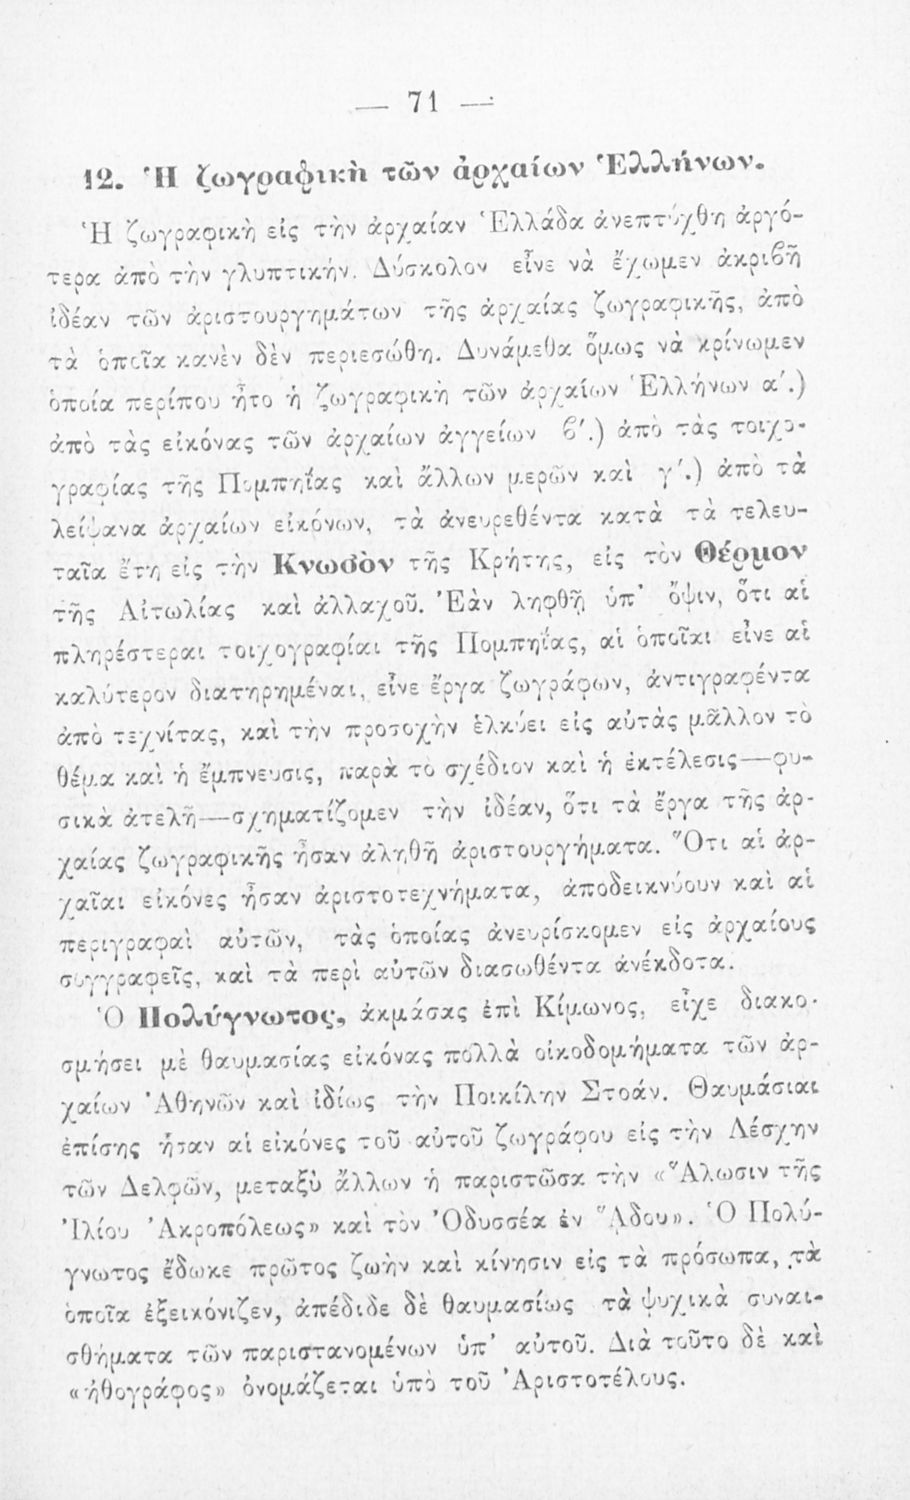 — 71 —
12. Ἡ ζωγραφικὴ τῶν ἀρχαίων Ἑλλήνων.
Ἡ ζωγραφικὴ εἰς τὴν ἀρχαίαν Ἑλλάδα ἀνεπτύχθη ἀργό-
τερα ἀπὸ τὴν γλυπτικήν. Δύσκολον εἶνε νὰ ἔχωμεν ἀκριβῆ
ἰδέαν τῶν ἀριστουργημάτων τῆς ἀρχαίας ζωγραφικῆς, ἀπὸ
τὰ ὁποῖα κανὲν δὲν περιεσώθη. Δυνάμεθα ὅμως νὰ κρίνωμεν
ὁποία περίπου ἦτο ἡ ζωγραφικὴ τῶν ἀρχαίων Ἑλλήνων α΄.)
ἀπὸ τὰς εἰκόνας τῶν ἀρχαίων ἀγγείων ϐ΄.) ἀπὸ τὰς τοιχο-
γραφίας τῆς Πομπηΐας καὶ ἄλλων μερῶν καὶ γ΄.) ἀπὸ τὰ
λείψανα ἀρχαίων εἰκόνων, τὰ ἀνευρεθέντα κατὰ τὰ τελευ-
ταῖα ἔτη εἰς τὴν Κνωσὸν τῆς Κρήτης, εἰς τὸν Θέρμον
τῆς Αἰτωλίας καὶ ἀλλαχοῦ. Ἐὰν ληφθῇ ὑπ' ὄψιν, ὅτι αἱ
πληρέστεραι τοιχογραφίαι τῆς Πομπηΐας, αἱ ὁποῖαι εἶνε αἱ
καλύτερον διατηρημέναι, εἶνε ἔργα ζωγράφων, ἀντιγραφέντα
ἀπὸ τεχνίτας, καὶ τὴν προσοχὴν ἑλκύει εἰς αὐτὰς μᾶλλον τὸ
θέμα καὶ ἡ ἔμπνευσις, παρὰ τὸ σχέδιον καὶ ἡ ἐκτέλεσις—φυ-
σικὰ ἀτελῆ—σχηματίζομεν τὴν ἰδέαν, ὅτι τὰ ἔργα τῆς ἀρ-
χαίας ζωγραφικῆς ἦσαν ἀληθῆ ἀριστουργήματα. Ὅτι αἱ ἀρ-
χαῖαι εἰκόνες ἦσαν ἀριστοτεχνήματα, ἀποδεικνύουν καὶ αἱ
περιγραφαὶ αὐτῶν, τὰς ὁποίας ἀνευρίσκομεν εἰς ἀρχαίους
συγγραφεῖς, καὶ τὰ περὶ αὐτῶν διασωθέντα ἀνέκδοτα.
Ὁ Πολύγνωτος, ἀκμάσας ἐπὶ Κίμωνος, εἶχε διακο-
σμήσει μὲ θαυμασίας εἰκόνας πολλὰ οἰκοδομήματα τῶν ἀρ-
χαίων Ἀθηνῶν καὶ ἰδίως τὴν Ποικίλην Στοάν. Θαυμάσιαι
ἐπίσης ἦσαν αἱ εἰκόνες τοῦ αὐτοῦ ζωγράφου εἰς τὴν Λέσχην
τῶν Δελφῶν, μεταξὺ ἄλλων ἡ παριστῶσα τὴν «Ἅλωσιν τῆς
Ἰλίου Ἀκροπόλεως» καὶ τὸν Ὀδυσσέα ἐν Ἅδου». Ὁ Πολύ-
γνωτος ἔδωκε πρῶτος ζωὴν καὶ κίνησιν εἰς τὰ πρόσωπα, τὰ
ὁποῖα ἐξεικόνιζεν, ἀπέδιδε δὲ θαυμασίως τὰ ψυχικὰ συναι-
σθήματα τῶν παριστανομένων ὑπ' αὐτοῦ. Διὰ τοῦτο δὲ καὶ
«ἠθογράφος» ὀνομάζεται ὑπὸ τοῦ Ἀριστοτέλους.